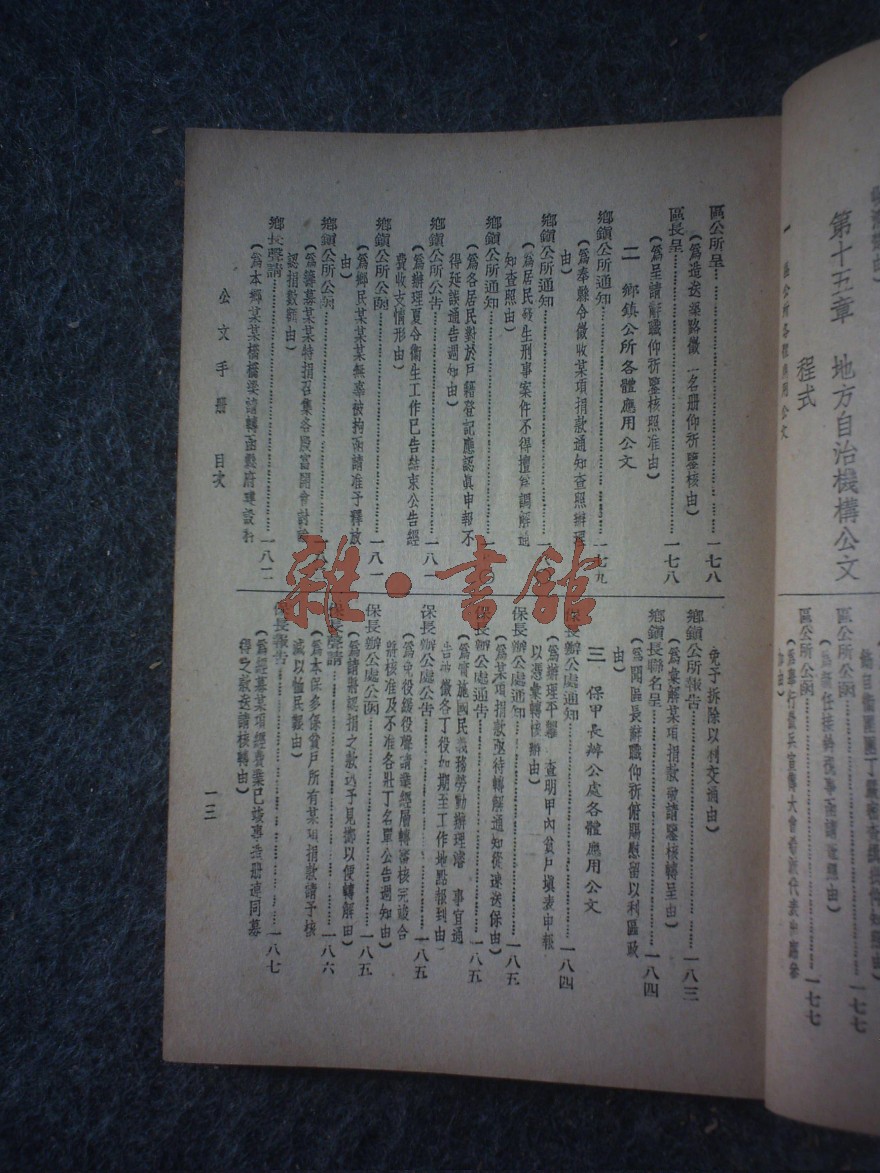 第十五章 地方自治機構公文
程式
區公所公函
一七七
區公所公函
一七七
區公所呈……一七八
區長呈……一七八
(爲呈請辭職仰祈鑒核照准由)
二 鄉鎮公所各體應用公文
鄉鎮公所通知……一七九
(爲奉縣令徵收某項捐款通知查照辦理
由)
鄉鎮公所通知
(爲居民發生刑事案件不得擅爲調解通
知查照由)
鄉鎮公所通知
(爲各居民對於戶籍登記應認眞申報不
得延誤通告週知由)
鄉鎮公所公告……一八一
(爲辦理夏令衞生工作已告結束公告經
費收支情形由)
鄉鎮公所公函……一八一
(爲鄉民某某某無辜被拘函請准予釋放
由)
鄉鎮公所公函
(爲籌募某某特捐召集各殷富開會討論
認捐數額由)
鄉長聲請……一八二
免予拆除以利交通由)
鄉鎮公所報告……一八三
(爲彙解某項捐款請鑒核轉呈由)
鄉鎮長聯名呈……一八四
(爲聞區長辭職仰祈俯賜慰留以利區政
由)
三 保甲長辦公處各體應用公文
保長辦公處通知……一八四
(爲辦理平糶 查明甲內貧戶塡表申報
以憑彙轉核辦由)
保長辦公處通知……一八五
(爲某項捐款亟待轉解通知從速送保由)
保長辦公處通告……一八五
(爲實施國民義務勞動辦理 事宜通
告 徵各丁役如期至工作地點報到由)
保長辦公處公告……一八五
(爲免役緩役聲請業經層轉審核完竣合
將核准及不准各壯丁名單公告週知由)
保長辦公處公函……一八五
(爲請將認捐之款 予見擲以便轉解由)
保長聲請……一八六
(爲本保多係貧戶所有某項捐款請予核
減以恤民艱由)
保長報告……一八七
(爲經募某項經費業已竣事造册連同募
得之款送請核轉由)
公文手册 目次
一三
雜·書館